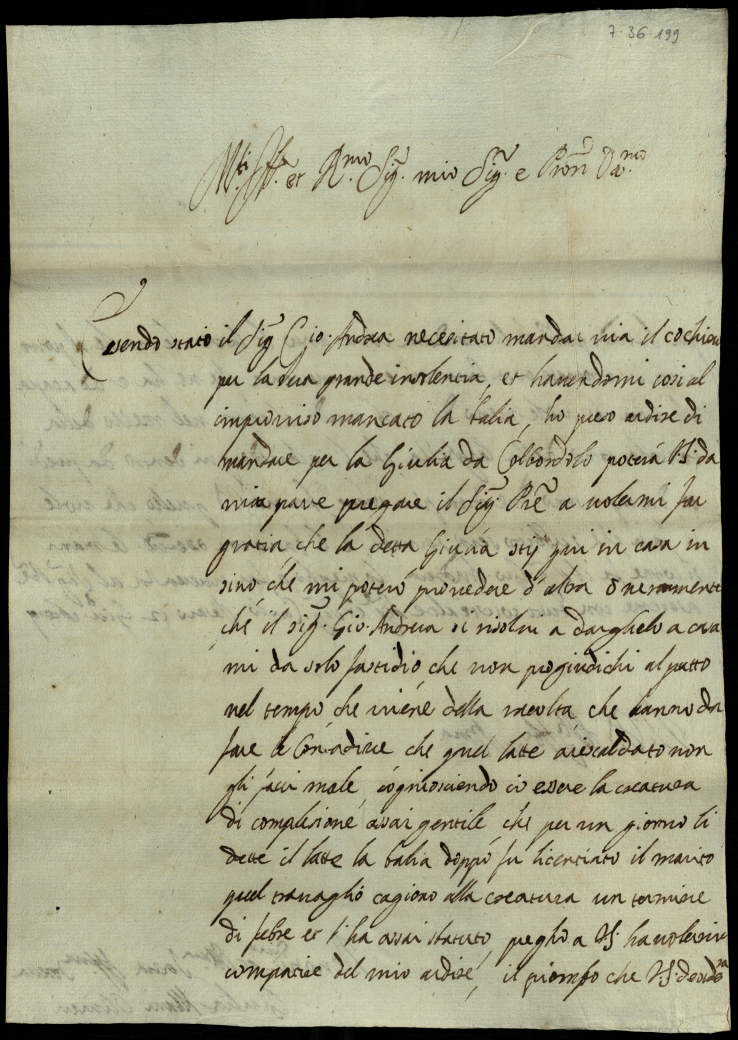 7-36-199
Ill. et R.mo Sig. mio Sig. e
Essendo stato il Sig. Gio. Andrea necesitato mandar via il cochiero
per la sua grande insolencia, et havendomi cosi al
improviso mancato la balia, ho preso ardire di
mandare per la Giulia da Colbordolo poterà V.S. da
mia parte pregare il Sig. Pre a volermi far
gratia che la detta Giulia stij qui in casa in
sino che mi poterò provedere d'altra o veramente
che il sig. Gio. Andrea si risolvi a darghelo a casa
mi da solo fastidio che non pregiudichi al putto
nel tempo che viene della racolta che hanno da
fare le Contadine che quel latte arescaldato non
gli facci male, cogniosciendo io essere la creatura
di complesione assai gentile, che per un giorno li
dette il latte la balia doppo fu licentiato il marito
quel travaglio cagiono alla creatura un termine
di febre et l'ha assai sbatuto, pregho a V.S. ha volermi
compatire del mio ardire, il piombo che V.S. desidera